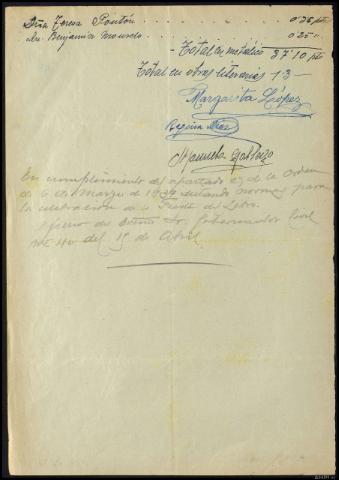 Dña Teresa Pontón . . . . 0'25 pts
Dn. Benjamin Mourelo . . . . 0'25 "
Total en metálico 37'10 pts
Total en obras literarias 13 —
Margarita López
Regina Díaz
Manuela
En cumplimiento del apartado de la Orden
de 6 de Marzo de dictando normas para
la celebración de la Fiesta del Libro.
Sr. Gobernador Civil
del 15 de Abril